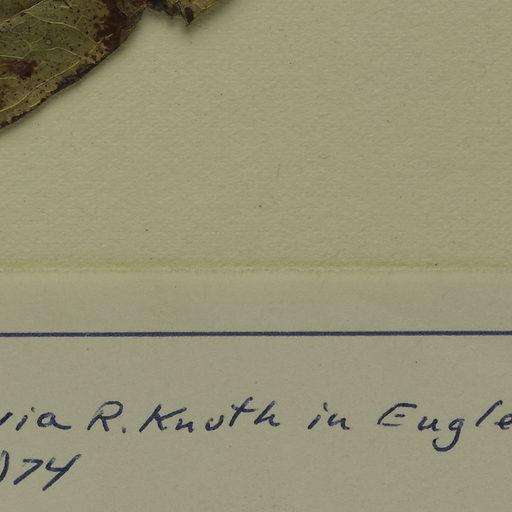 via R. Knuth in Engle
)74